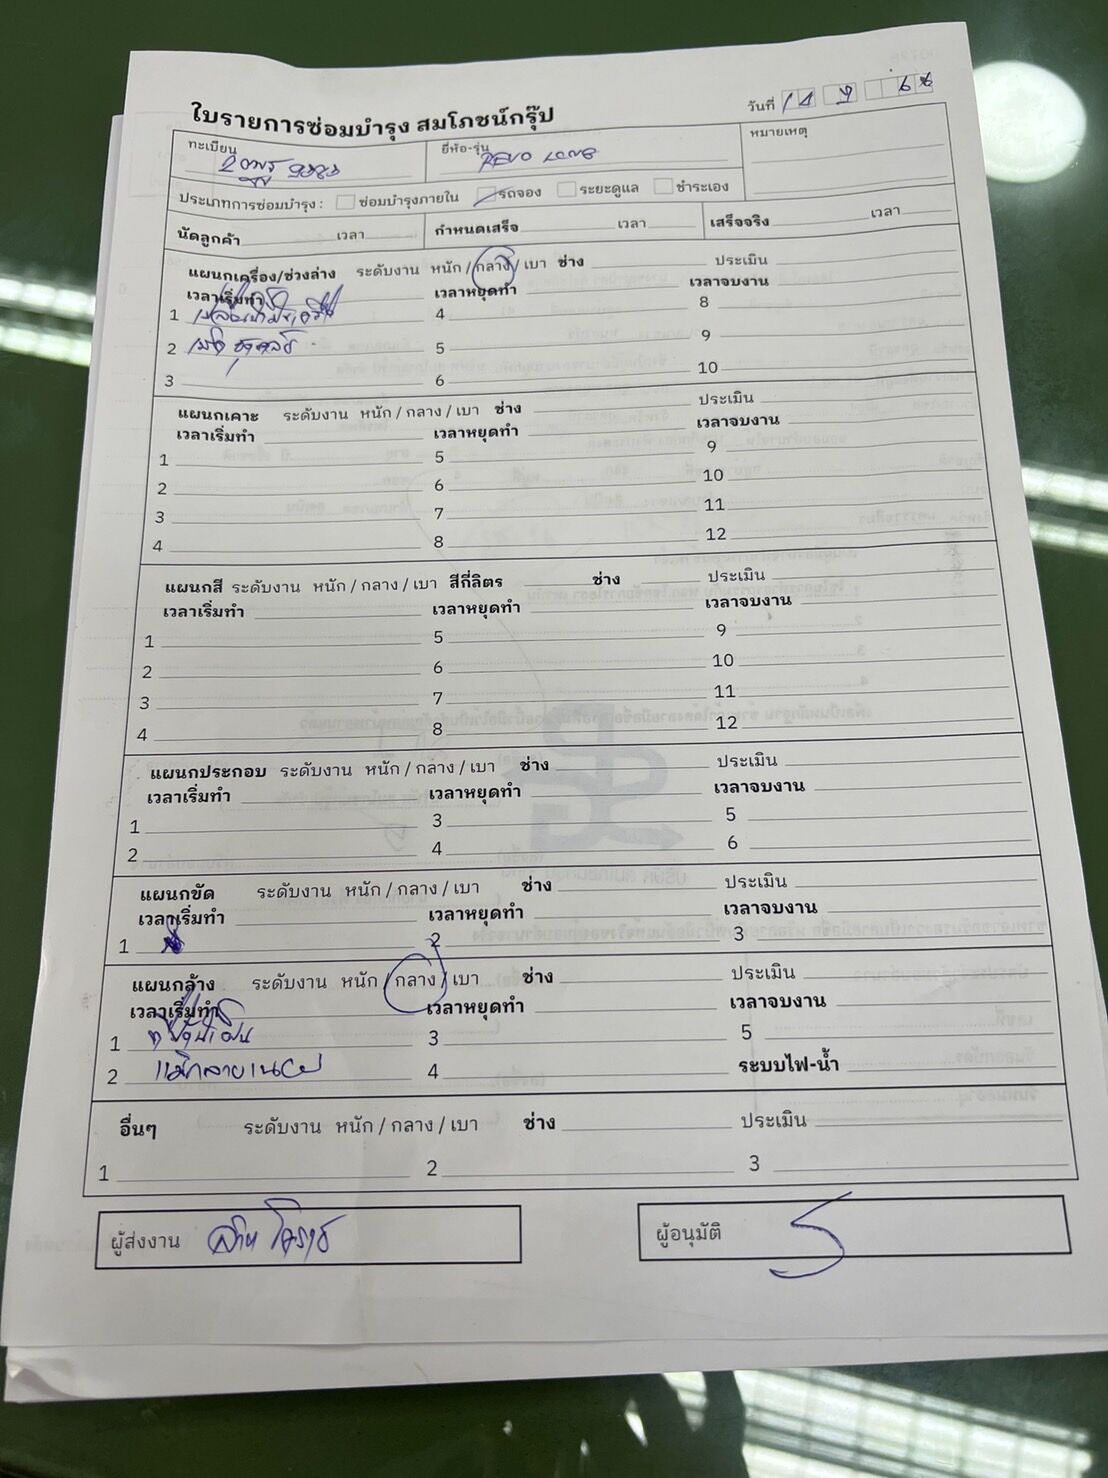 ใบรายการซ่อมบำรุง สมโภชน์กรุ๊ป
วันที่ 14 9 6
ทะเบียน
ยี่ห้อ-รุ่น REVO LONG
หมายเหตุ
ประเภทการซ่อมบำรุง : ซ่อมบำรุงภายใน รถจอง ระยะดูแล ชำระเอง
นัดลูกค้า เวลา กำหนดเสร็จ เวลา เสร็จจริง เวลา
แผนกเครื่อง/ช่วงล่าง ระดับงาน หนัก / กลาง / เบา ช่าง ประเมิน
เวลาเริ่มทำ เวลาหยุดทำ เวลาจบงาน
1 4 8
2 5 9
3 6 10
แผนกเคาะ ระดับงาน หนัก / กลาง / เบา ช่าง ประเมิน
เวลาเริ่มทำ เวลาหยุดทำ เวลาจบงาน
1 5 9
2 6 10
3 7 11
4 8 12
แผนกสี ระดับงาน หนัก / กลาง / เบา สีกี่ลิตร ช่าง ประเมิน
เวลาเริ่มทำ เวลาหยุดทำ เวลาจบงาน
1 5 9
2 6 10
3 7 11
4 8 12
แผนกประกอบ ระดับงาน หนัก / กลาง / เบา ช่าง ประเมิน
เวลาเริ่มทำ เวลาหยุดทำ เวลาจบงาน
1 3 5
2 4 6
แผนกขัด ระดับงาน หนัก / กลาง / เบา ช่าง ประเมิน
เวลาเริ่มทำ เวลาหยุดทำ เวลาจบงาน
1 2 3
แผนกล้าง ระดับงาน หนัก / กลาง / เบา ช่าง ประเมิน
เวลาเริ่มทำ เวลาหยุดทำ เวลาจบงาน
1 3 5
2 4 ระบบไฟ-น้ำ
อื่นๆ ระดับงาน หนัก / กลาง / เบา ช่าง ประเมิน
1 2 3
ผู้ส่งงาน
ผู้อนุมัติ